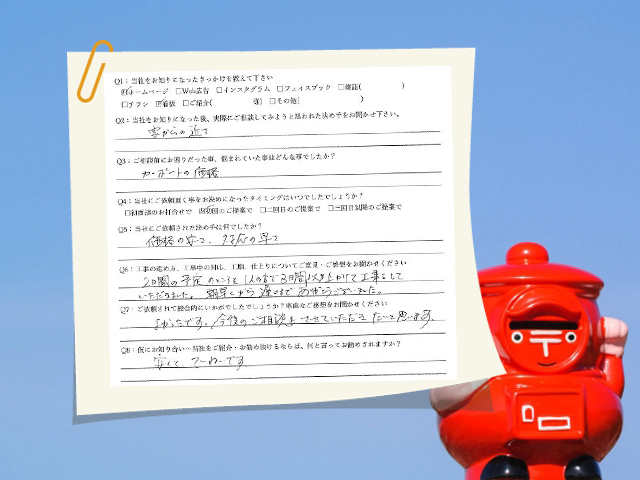 Q1：当社をお知りになったきっかけを教えて下さい
☑ホームページ □Web広告 □インスタグラム □フェイスブック □雑誌( )
□チラシ ☑看板 □ご紹介( 様) □その他( )
Q2：当社をお知りになった後、実際にご相談してみようと思われた決め手をお聞かせ下さい。
家からの近さ
Q3：ご相談前にお困りだった事、悩まれていた事はどんな事でしたか？
カーポートの価格
Q4：当社にご依頼頂く事をお決めになったタイミングはいつでしたでしょうか？
□初面談のお打合せで ☑初回のご提案で □二回目のご提案で □三回目以降のご提案で
Q5：当社にご依頼された決め手は何でしたか？
価格の安さ、対応の早さ
Q6：工事の進め方、工事中の対応、工期、仕上りについてご意見・ご感想をお聞かせください
2日間の予定のところを1人の方で3日間 工事をして
いただきました。朝早くから遅くまでありがとうございました。
Q7：ご依頼されて総合的にいかがでしたでしょうか？率直なご感想をお聞かせください
よかったです。今後のご相談もさせていただきたいと思います。
Q8：仮にお知り合いへ当社をご紹介・お勧め頂けるならば、何と言ってお勧めされますか？
安くて、ていねいです